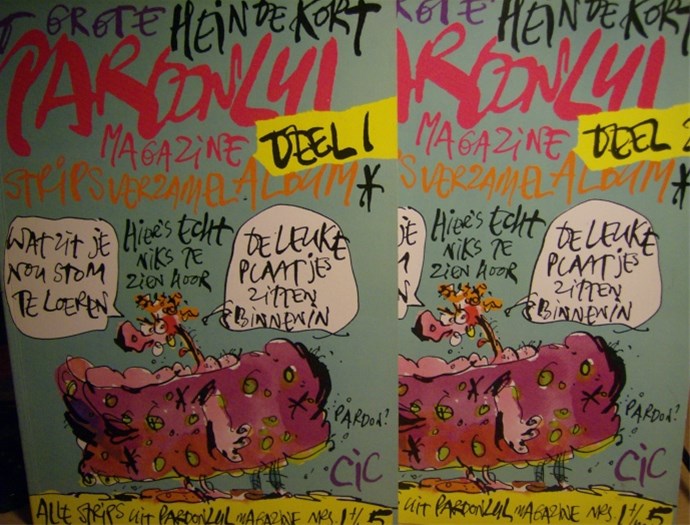 GROTE HEIN DE KORT
PARDONLUL
MAGAZINE DEEL 1
STRIPSVERZAMELALBUM*
WAT ZIT JE
NOU STOM
TE LOEREN
HIER'S ECHT
NIKS TE
ZIEN HOOR
DE LEUKE
PLAATJES
ZITTEN
BINNENIN
PARDON?
CIC
ALLE STRIPS UIT PARDONLUL MAGAZINE NRS. 1 t/m 5
GROTE HEIN DE KORT
ARDONLUL
MAGAZINE DEEL 2
SVERZAMELALBUM*
JE
HIER'S ECHT
NIKS TE
ZIEN HOOR
DE LEUKE
PLAATJES
ZITTEN
BINNENIN
PARDON?
CIC
STRIPS UIT PARDONLUL MAGAZINE NRS. 1 t/m 5